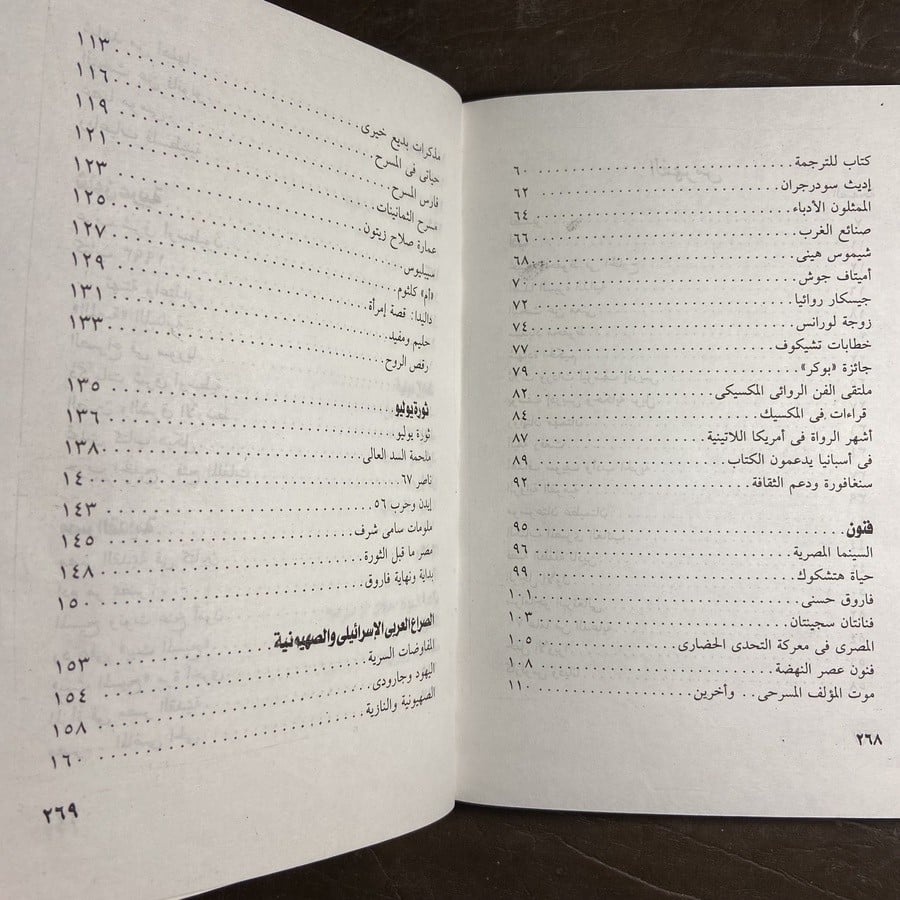 كتاب للترجمة ٦٠
إديث سودرجران ٦٢
الممثلون الأدباء ٦٤
صنائع الغرب ٦٦
شيموس هينى ٦٨
أميتاف جوش ٧٠
جيسكار روائيا ٧٢
زوجة لورانس ٧٤
خطابات تشيكوف ٧٧
جائزة «بوكر» ٧٩
ملتقى الفن الروائى المكسيكى ٨٢
قراءات فى المكسيك ٨٤
أشهر الرواة فى أمريكا اللاتينية ٨٧
فى أسبانيا يدعمون الكتاب ٨٩
سنغافورة ودعم الثقافة ٩٢
فنون ٩٥
السينما المصرية ٩٦
حياة هتشكوك ٩٩
فاروق حسنى ١٠١
فنانتان سجينتان ١٠٣
المصرى فى معركة التحدى الحضارى ١٠٥
فنون عصر النهضة ١٠٨
موت المؤلف المسرحى.. وأخرين ١١٠
٢٦٨
مذكرات بديع خيرى ١١٣
حياتى فى المسرح ١١٦
فارس المسرح ١١٩
مسرح الثمانينات ١٢١
عمارة صلاح زيتون ١٢٣
سيبيليوس ١٢٥
«أم» كلثوم ١٢٧
داليدا: قصة إمرأة ١٢٩
حليم ومفيد ١٣١
رقص الروح ١٣٣
ثورة يوليو ١٣٥
ثورة يوليو ١٣٦
ملحمة السد العالى ١٣٨
ناصر ٦٧ ١٤٠
إيدن وحرب ٥٦ ١٤٣
ملومات سامى شرف ١٤٥
مصر ما قبل الثورة ١٤٨
بداية ونهاية فاروق ١٥٠
الصراع العربى الإسرائيلى والصهيونية ١٥٣
المفاوضات السرية ١٥٤
اليهود وجارودى ١٥٨
الصهيونية والنازية ١٦٠
٢٦٩